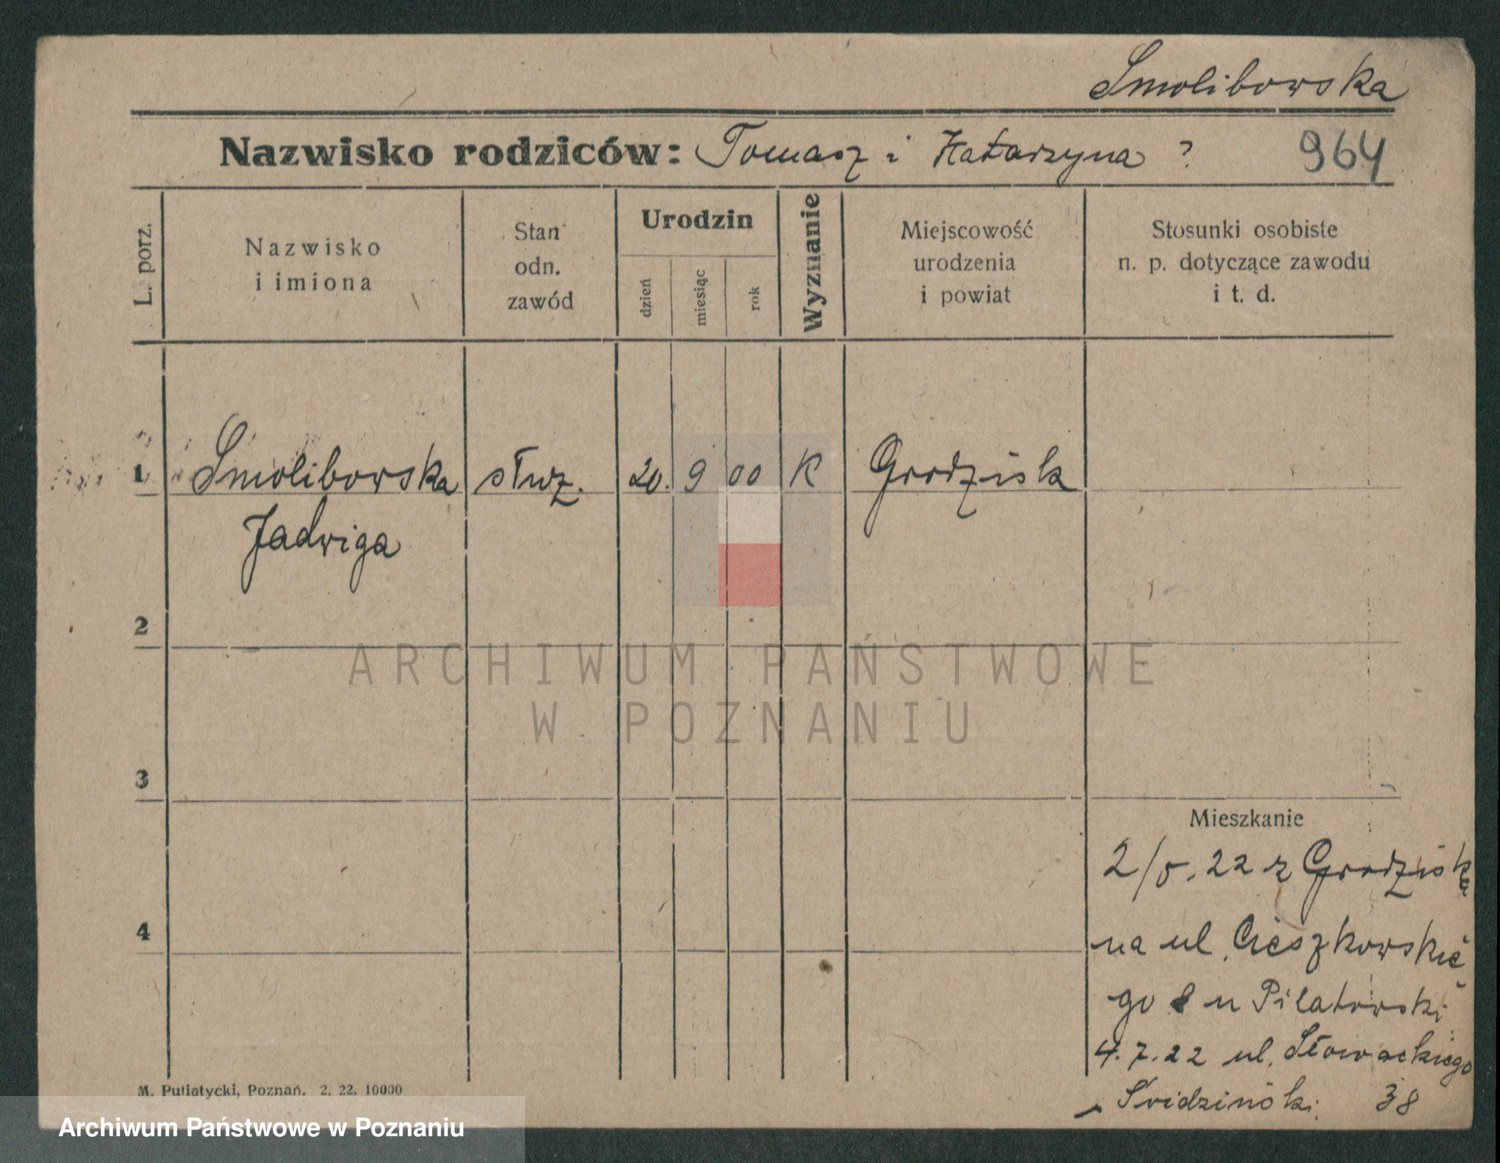 Smolibowska
Nazwisko rodziców: Tomasz i Katarzyna ? 964
L. porz.
Nazwisko
i imiona
Stan
odn.
zawód
Urodzin
dzień
miesiąc
rok
Wyznanie
Miejscowość
urodzenia
i powiat
Stosunki osobiste
n. p. dotyczące zawodu
i t. d.
1 Smolibowska służ. 20. 9 00 K Grodzisk
Jadwiga
2
ARCHIWUM PAŃSTWOWE
W POZNANIU
3
Mieszkanie
2/5. 22 z Grodziska
4
na ul. Cieszkowskie-
go 8 u Pilatowski
4.7.22 ul. Słowackiego
38
M. Putiatycki, Poznań. 2. 22. 10000
Archiwum Państwowe w Poznaniu